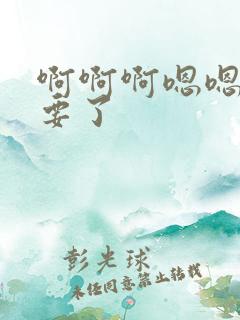 啊啊啊嗯嗯
要了
彭光球
未经同意禁止转载